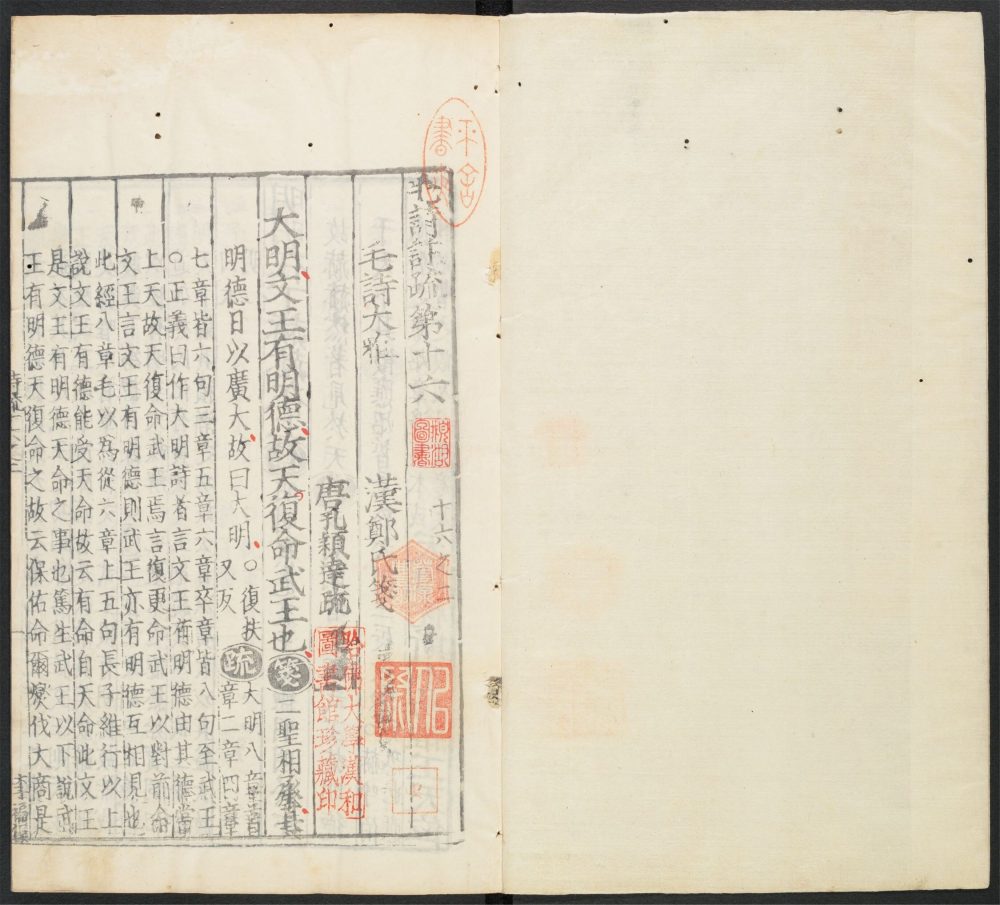 毛詩註疏第十六
十六之二
毛詩大雅
漢鄭氏箋
唐孔穎達疏
大明文王有明德故天復命武王也箋二聖相承其
明德日以廣大故曰大明〇復扶又反疏大明八章首章二章四章
七章皆六句三章五章六章卒章皆八句至武王
〇正義曰作大明詩者言文王有明德由其德當
上天故天復命武王焉言復更命武王以對前命
文王言文王有明德則武王亦有明德互相見也
此經八章毛以為從六章上五句長子維行以上
說文王有德能受天命故云有命自天命此文王
是文王有明德天命之事也篤生武王以下說武
王有明德天復命之故云保佑命爾燮伐大商是
哈佛大學漢和
圖書館珍藏印